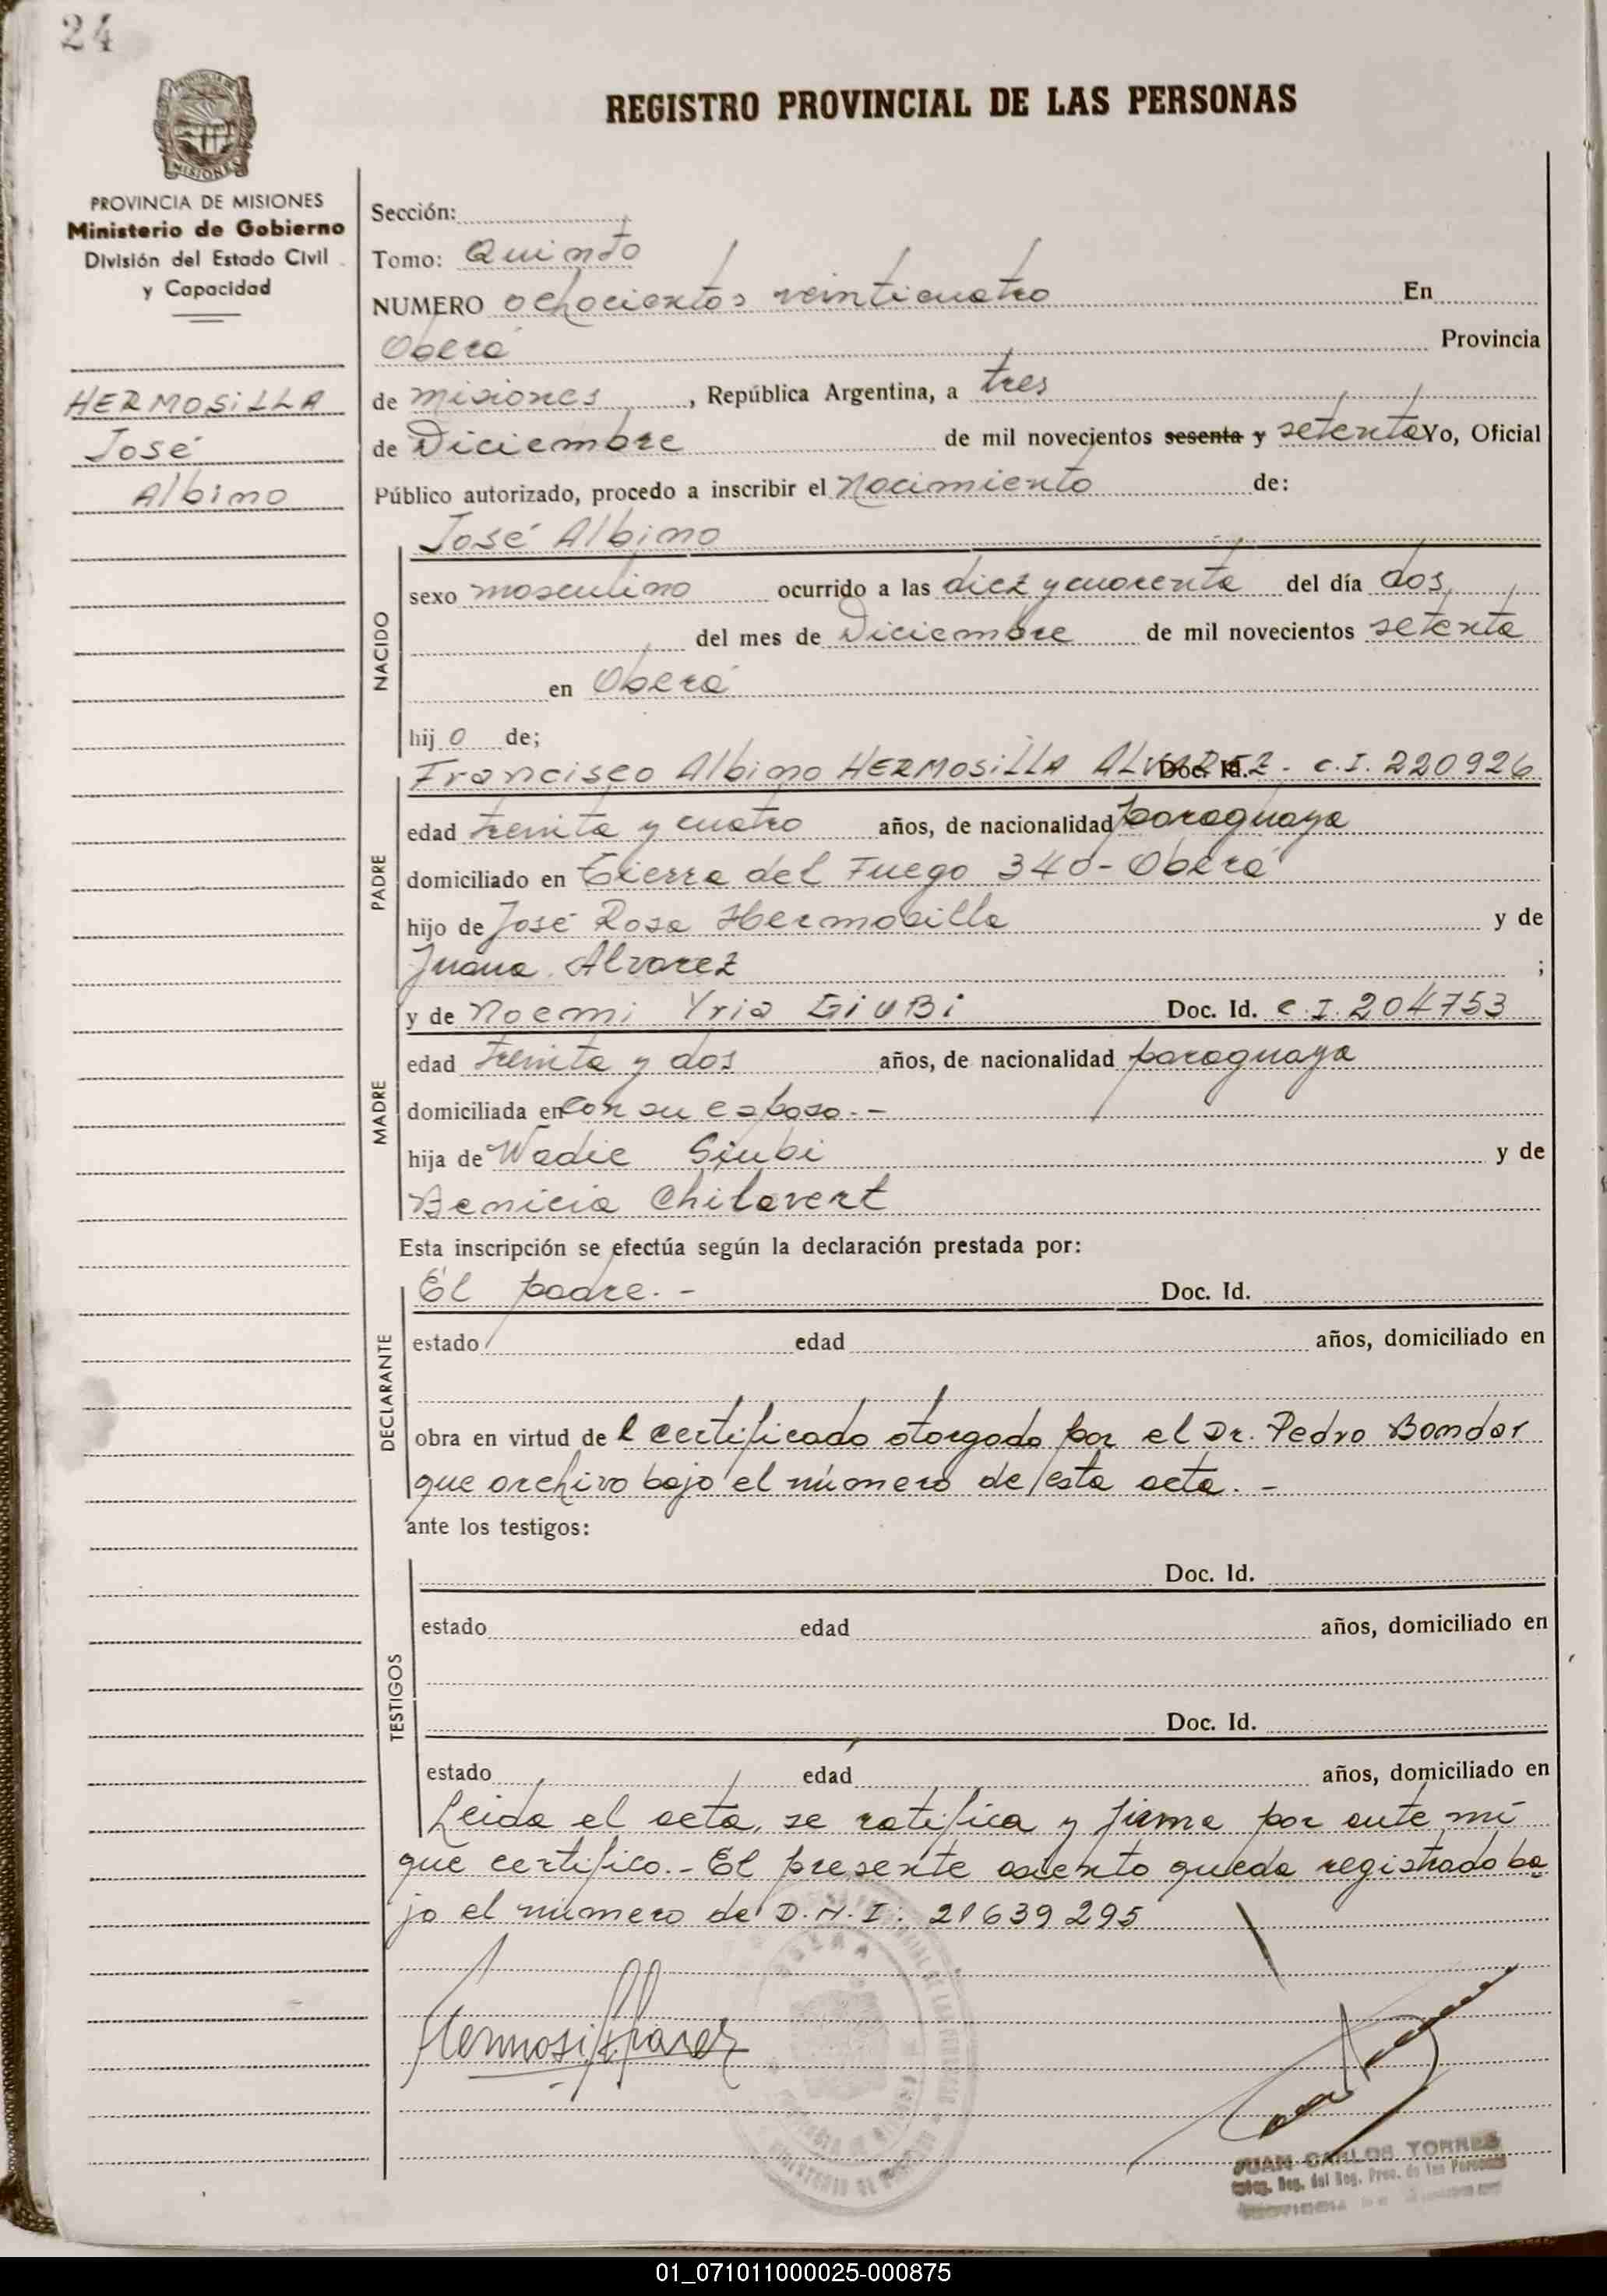 24
MISIONES
REGISTRO PROVINCIAL DE LAS PERSONAS
PROVINCIA DE MISIONES
Ministerio de Gobierno
División del Estado Civil
y Capacidad
HERMOSILLA
José
Albino
Sección:
Tomo: Quinto
NUMERO ochocientos veinticuatro En
Oberá Provincia
de misiones, República Argentina, a tres
de Diciembre de mil novecientos sesenta y setenta Yo, Oficial
Público autorizado, procedo a inscribir el Nacimiento de:
José Albino
NACIDO
sexo masculino ocurrido a las diez y cuarenta del día dos
del mes de Diciembre de mil novecientos setenta
en Oberá
hijo de;
Francisco Albino HERMOSILLA ALVAREZ - Doc. Id. C.I. 220926
PADRE
edad treinta y cuatro años, de nacionalidad paraguaya
domiciliado en Tierra del Fuego 340 - Oberá
hijo de José Rosa Hermosilla y de
Juana Alvarez ;
y de Noemi Yria GIUBI Doc. Id. C.I. 204753
MADRE
edad treinta y dos años, de nacionalidad paraguaya
domiciliada en con su esposo. -
hija de Wadie Giubi y de
Benicia Chilavert
Esta inscripción se efectúa según la declaración prestada por:
El padre. - Doc. Id.
DECLARANTE
estado edad años, domiciliado en
obra en virtud del certificado otorgado por el Dr. Pedro Bondar
que archivo bajo el número de esta acta. -
ante los testigos:
Doc. Id.
TESTIGOS
estado edad años, domiciliado en
Doc. Id.
estado edad años, domiciliado en
Leida el acta, se ratifica y firma por ante mí
que certifico. - El presente asiento queda registrado ba
jo el número de D.N.I: 21639295
OBERA
JUAN CARLOS TORRES
del Reg. Prov. de las Personas
01_071011000025-000875